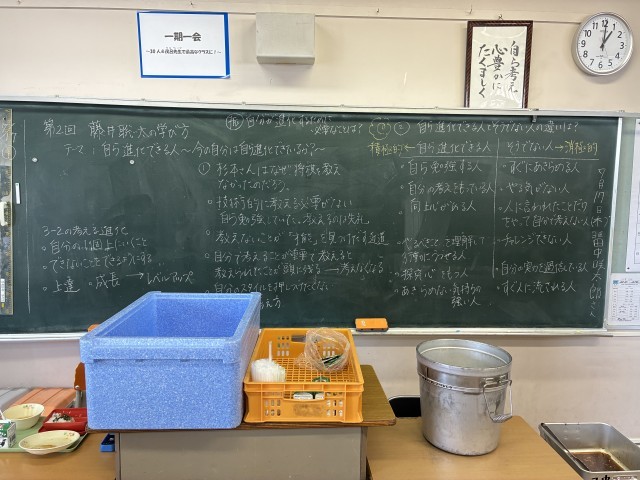 一期一会
自ら考え
心豊かに
たくましく
第2回 藤井聡太の学び方
テーマ：自ら進化できる人～今の自分は自ら進化できているか？～
3-2の考える進化
・自分の1個上にいくこと
・できないことをできるようにする
・上達 ・成長 → レベルアップ
自分が進化するために
必要なことは？
① 杉本さんはなぜ将棋を教え
なかったのだろう。
・技術を自分で考える必要がない
・教えないことが「才能」を見つけだす近道
・自分で考えることが大事で教えると
教えられたことが頭に残る → 考えなくなる
・自分のスタイルを押しつけたくない
② 自ら進化できる人とそうでない人の違いは？
積極的 ← 自ら進化できる人
そうでない人 → 消極的
・自ら勉強する人
・自分の考えをもっている人
・向上心がある人
・べるべきことを理解して
・探究心をもつ人
・あきらめない気持ちの
強い人
・すぐにあきらめる人
・やる気がない人
・人に言われたことだけ
やって自分で考えない人
・チャレンジできない人
・自分の実力を過信している人
・すぐ人に流される人
7月17日(木)